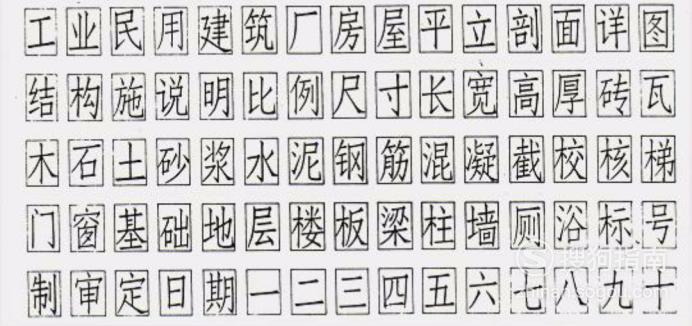 工业民用建筑厂房屋平立剖面详图
结构施说明比例尺寸长宽高厚砖瓦
木石土砂浆水泥钢筋混凝截校核梯
门窗基础地层楼板梁柱墙厕浴标号
制审定日期一二三四五六七八九十
搜狗指南